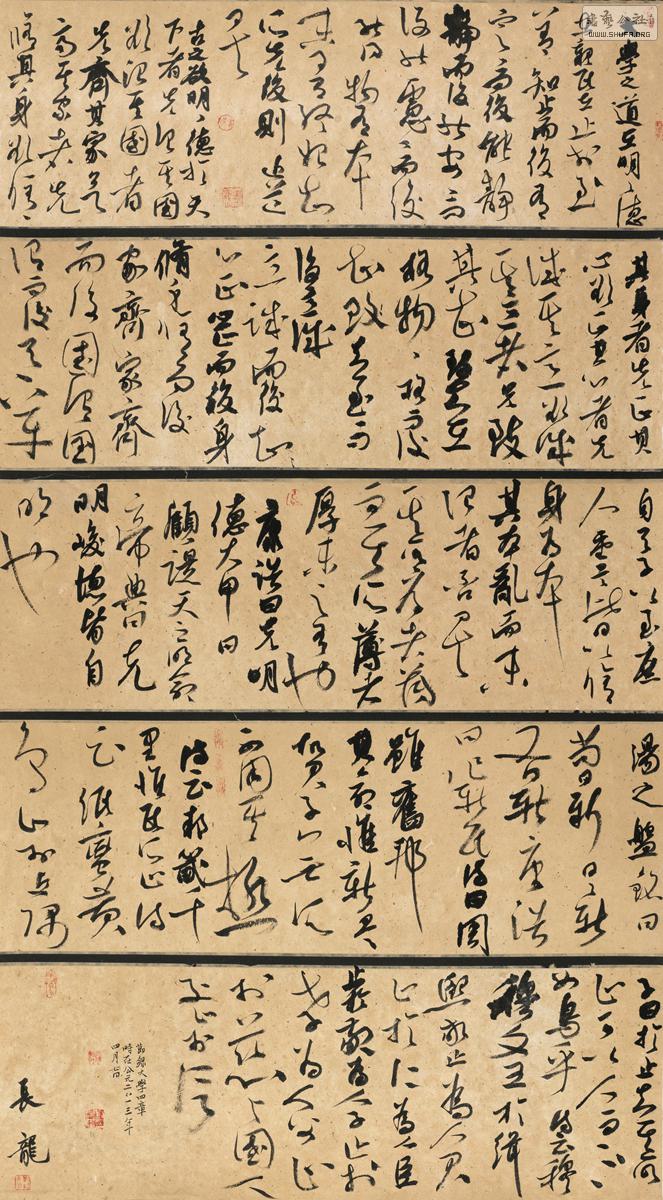 大學之道在明明德
在親民在止於至
善知止而後有
定定而後能靜
靜而後能安安而
後能慮慮而後
能得物有本
末事有終始知
所先後則近道
矣
古之欲明明德於天
下者先治其國
欲治其國者
先齊其家欲
齊其家者先
脩其身欲脩
其身者先正其
心欲正其心者先
誠其意欲誠
其意者先致
其知致知在
格物物格而後
知致知至而
後意誠
意誠而後
心正心正而後身
脩身脩而後
家齊家齊
而後國治國
治而後天下平
自天子以至庶
人壹是皆以脩
身為本
其本亂而末
治者否矣
其所厚者薄
而其所薄者
厚未之有也
康誥曰克明
德大甲曰
顧諟天之明命
帝典曰克
明峻德皆自
明也
湯之盤銘曰
苟日新日日新
又日新康誥
曰作新民詩曰周
雖舊邦
其命惟新是故
君子無所
不用其極
詩云邦畿千
里惟民所止詩
云緡蠻黃
鳥止於丘隅
子曰於止知其所
止可以人而不
如鳥乎詩云穆
穆文王於緝
熙敬止為人君
止於仁為人臣
止於敬為人子止於
孝為人父止
於慈與國人
交止於信
節錄大學四章
時在公元二〇一三年
四月
長龍
WWW.SHUFA.ORG